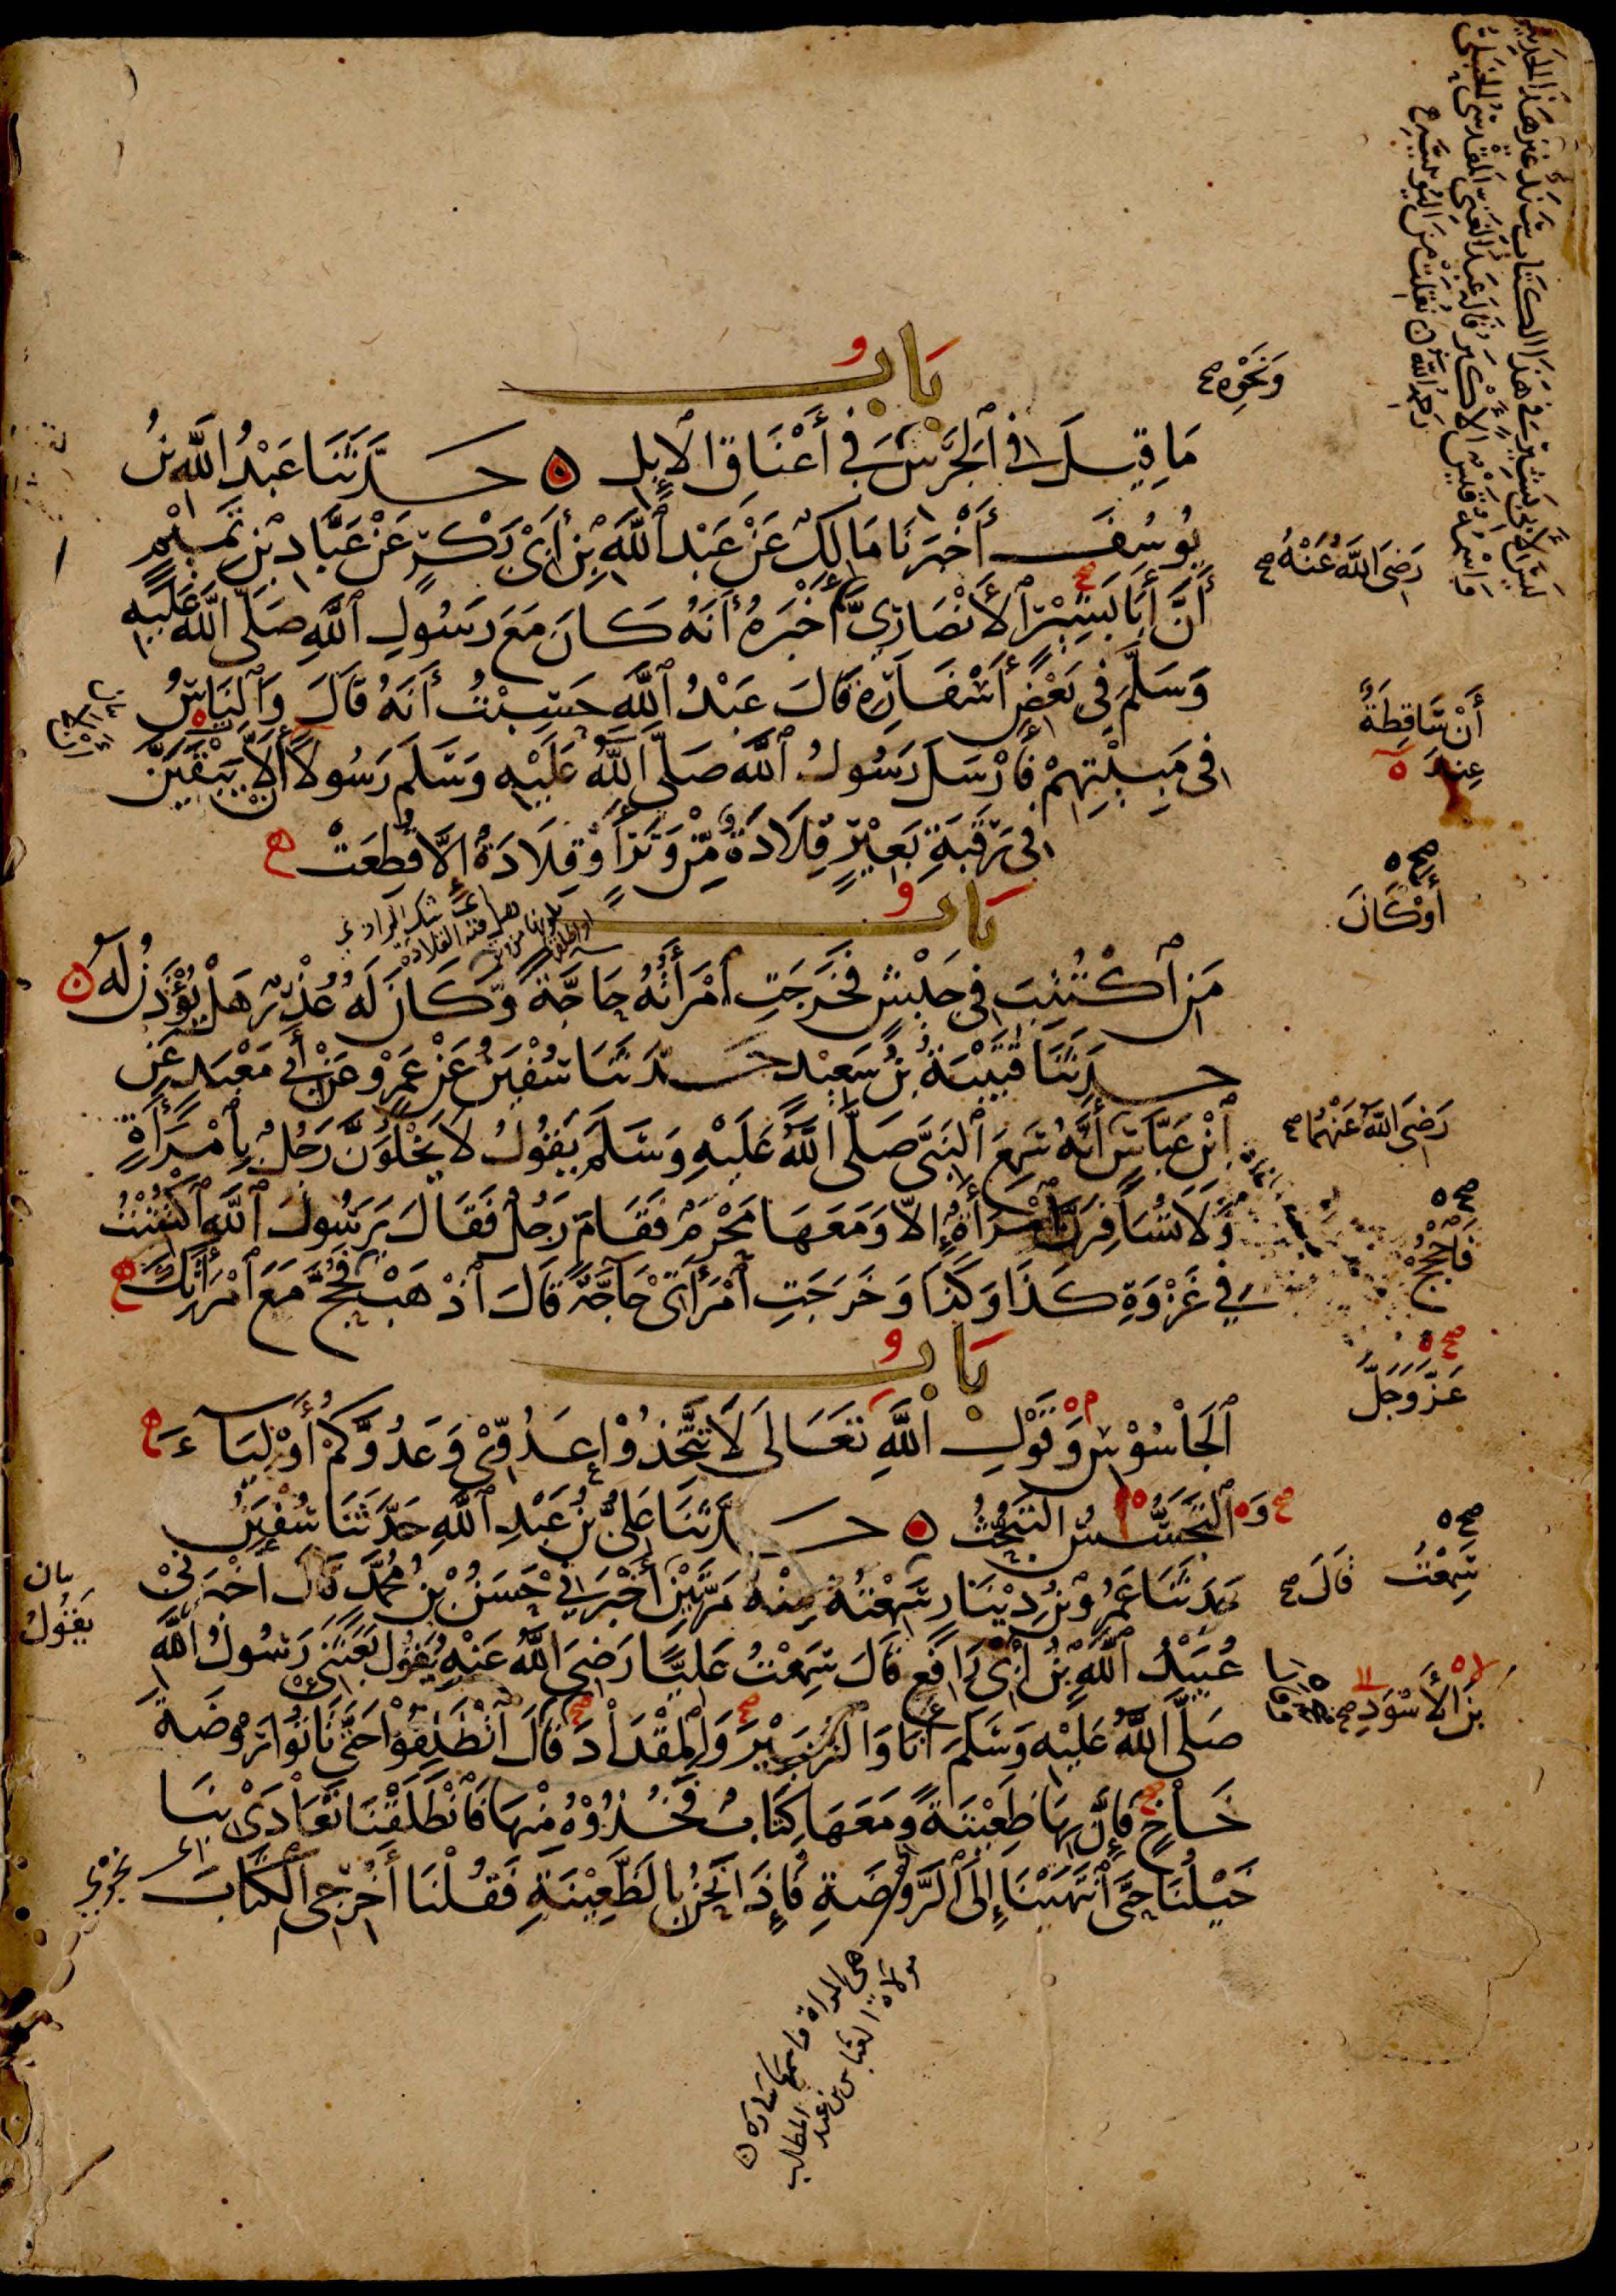 بَابُ
مَا قِيلَ فِي الْجَرَسِ فِي أَعْنَاقِ الْإِبِلِ حَدَّثَنَا عَبْدُ اللَّهِ بْنُ
يُوسُفَ أَخْبَرَنَا مَالِكٌ عَنْ عَبْدِ اللَّهِ بْنِ أَبِي بَكْرٍ عَنْ عَبَّادِ بْنِ تَمِيمٍ
أَنَّ أَبَا بَشِيرٍ الْأَنْصَارِيَّ أَخْبَرَهُ أَنَّهُ كَانَ مَعَ رَسُولِ اللَّهِ صَلَّى اللَّهُ عَلَيْهِ
وَسَلَّمَ فِي بَعْضِ أَسْفَارِهِ قَالَ عَبْدُ اللَّهِ حَسِبْتُ أَنَّهُ قَالَ وَالنَّاسُ
فِي مَبِيتِهِمْ فَأَرْسَلَ رَسُولُ اللَّهِ صَلَّى اللَّهُ عَلَيْهِ وَسَلَّمَ رَسُولًا أَلَّا يَبْقَيَنَّ
فِي رَقَبَةِ بَعِيرٍ قِلَادَةٌ مِنْ وَتَرٍ أَوْ قِلَادَةٌ إِلَّا قُطِعَتْ
بَابُ
مَنِ اكْتُتِبَ فِي جَيْشٍ فَخَرَجَتِ امْرَأَتُهُ حَاجَّةً وَكَانَ لَهُ عُذْرٌ هَلْ يُؤْذَنُ لَهُ
حَدَّثَنَا قُتَيْبَةُ بْنُ سَعِيدٍ حَدَّثَنَا سُفْيَنُ عَنْ عَمْرٍو عَنْ أَبِي مَعْبَدٍ عَنِ
ابْنِ عَبَّاسٍ أَنَّهُ سَمِعَ النَّبِيَّ صَلَّى اللَّهُ عَلَيْهِ وَسَلَّمَ يَقُولُ لَا يَخْلُوَنَّ رَجُلٌ بِامْرَأَةٍ
وَلَا تُسَافِرَنَّ امْرَأَةٌ إِلَّا وَمَعَهَا مَحْرَمٌ فَقَامَ رَجُلٌ فَقَالَ يَرَسُولَ اللَّهِ اكْتُتِبْتُ
فِي غَزْوَةِ كَذَا وَكَذَا وَخَرَجَتِ امْرَأَتِي حَاجَّةً قَالَ اذْهَبْ فَحُجَّ مَعَ امْرَأَتِكَ
بَابُ
الْجَاسُوسِ وَقَوْلِ اللَّهِ تَعَالَى لَا تَتَّخِذُوا عَدُوِّي وَعَدُوَّكُمْ أَوْلِيَاءَ
وَالتَّجَسُّسُ التَّبَحُّثُ حَدَّثَنَا عَلِيُّ بْنُ عَبْدِ اللَّهِ حَدَّثَنَا سُفْيَنُ
حَدَّثَنَا عَمْرُو بْنُ دِينَارٍ سَمِعْتُهُ مِنْهُ مَرَّتَيْنِ أَخْبَرَنِي حَسَنُ بْنُ مُحَمَّدٍ قَالَ أَخْبَرَنِي
عُبَيْدُ اللَّهِ بْنُ أَبِي رَافِعٍ قَالَ سَمِعْتُ عَلِيًّا رَضِيَ اللَّهُ عَنْهُ يَقُولُ بَعَثَنِي رَسُولُ اللَّهِ
صَلَّى اللَّهُ عَلَيْهِ وَسَلَّمَ أَنَا وَالزُّبَيْرَ وَالْمِقْدَادَ قَالَ انْطَلِقُوا حَتَّى تَأْتُوا رَوْضَةَ
خَاخٍ فَإِنَّ بِهَا ظَعِينَةً وَمَعَهَا كِتَابٌ فَخُذُوهُ مِنْهَا فَانْطَلَقْنَا تَعَادَى بِنَا
خَيْلُنَا حَتَّى انْتَهَيْنَا إِلَى الرَّوْضَةِ فَإِذَا نَحْنُ بِالظَّعِينَةِ فَقُلْنَا أَخْرِجِي الْكِتَابَ
وَنَحْوِهِ صح
رَضِيَ اللَّهُ عَنْهُ صح
أَنْ سَاقِطَةٌ
عِنْدَ ه
صح ه
أَوْ كَانَ
رَضِيَ اللَّهُ عَنْهُمَا صح
صح ه
فَاحْجُجْ
صح ه
عَزَّ وَجَلَّ
صح ه
سَمِعْتُ
قَالَ صح
بْنَ الْأَسْوَدِ صح
يَقُولُ
لَيْسَ لِأَبِي بَشِيرٍ فِي هَذَا الْكِتَابِ سَنَدٌ غَيْرُ هَذَا الْحَدِيثِ
وَاسْمُهُ قَيْسٌ الْأَكْبَرُ قَالَهُ عَبْدُ الْغَنِيِّ الْمَقْدِسِيُّ الْحَنْبَلِيُّ
رَحِمَهُ اللَّهُ نُقِلَتْ مِنَ الْيُونِينِي
هي المراة واسمها ساره
مولاة العباس بن عبد المطلب